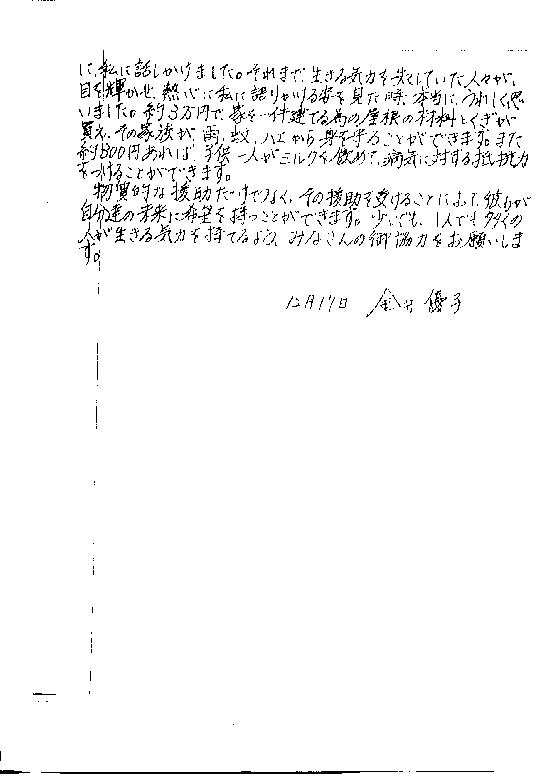 に、私に話しかけました。それまで、生きる気力を失くしていた人々が、
目を輝かせ、熱心に私に語りかける姿を見た時、本当に、うれしく思
いました。約3万円で、家を一件建てる為の屋根の材料とくぎが
買え、その家族が、雨、蚊、ハエから身を守ることができます。また
約500円あれば、子供一人がミルクを飲めて、病気に対する抵抗力
をつけることができます。
物質的な援助だけでなく、その援助を受けることによって、彼らが
自分達の未来に希望を持つことができます。少しでも、1人でも多くの
人が生きる気力を持てるよう、みなさんの御協力をお願いしま
す。
12月17日 金井 優子